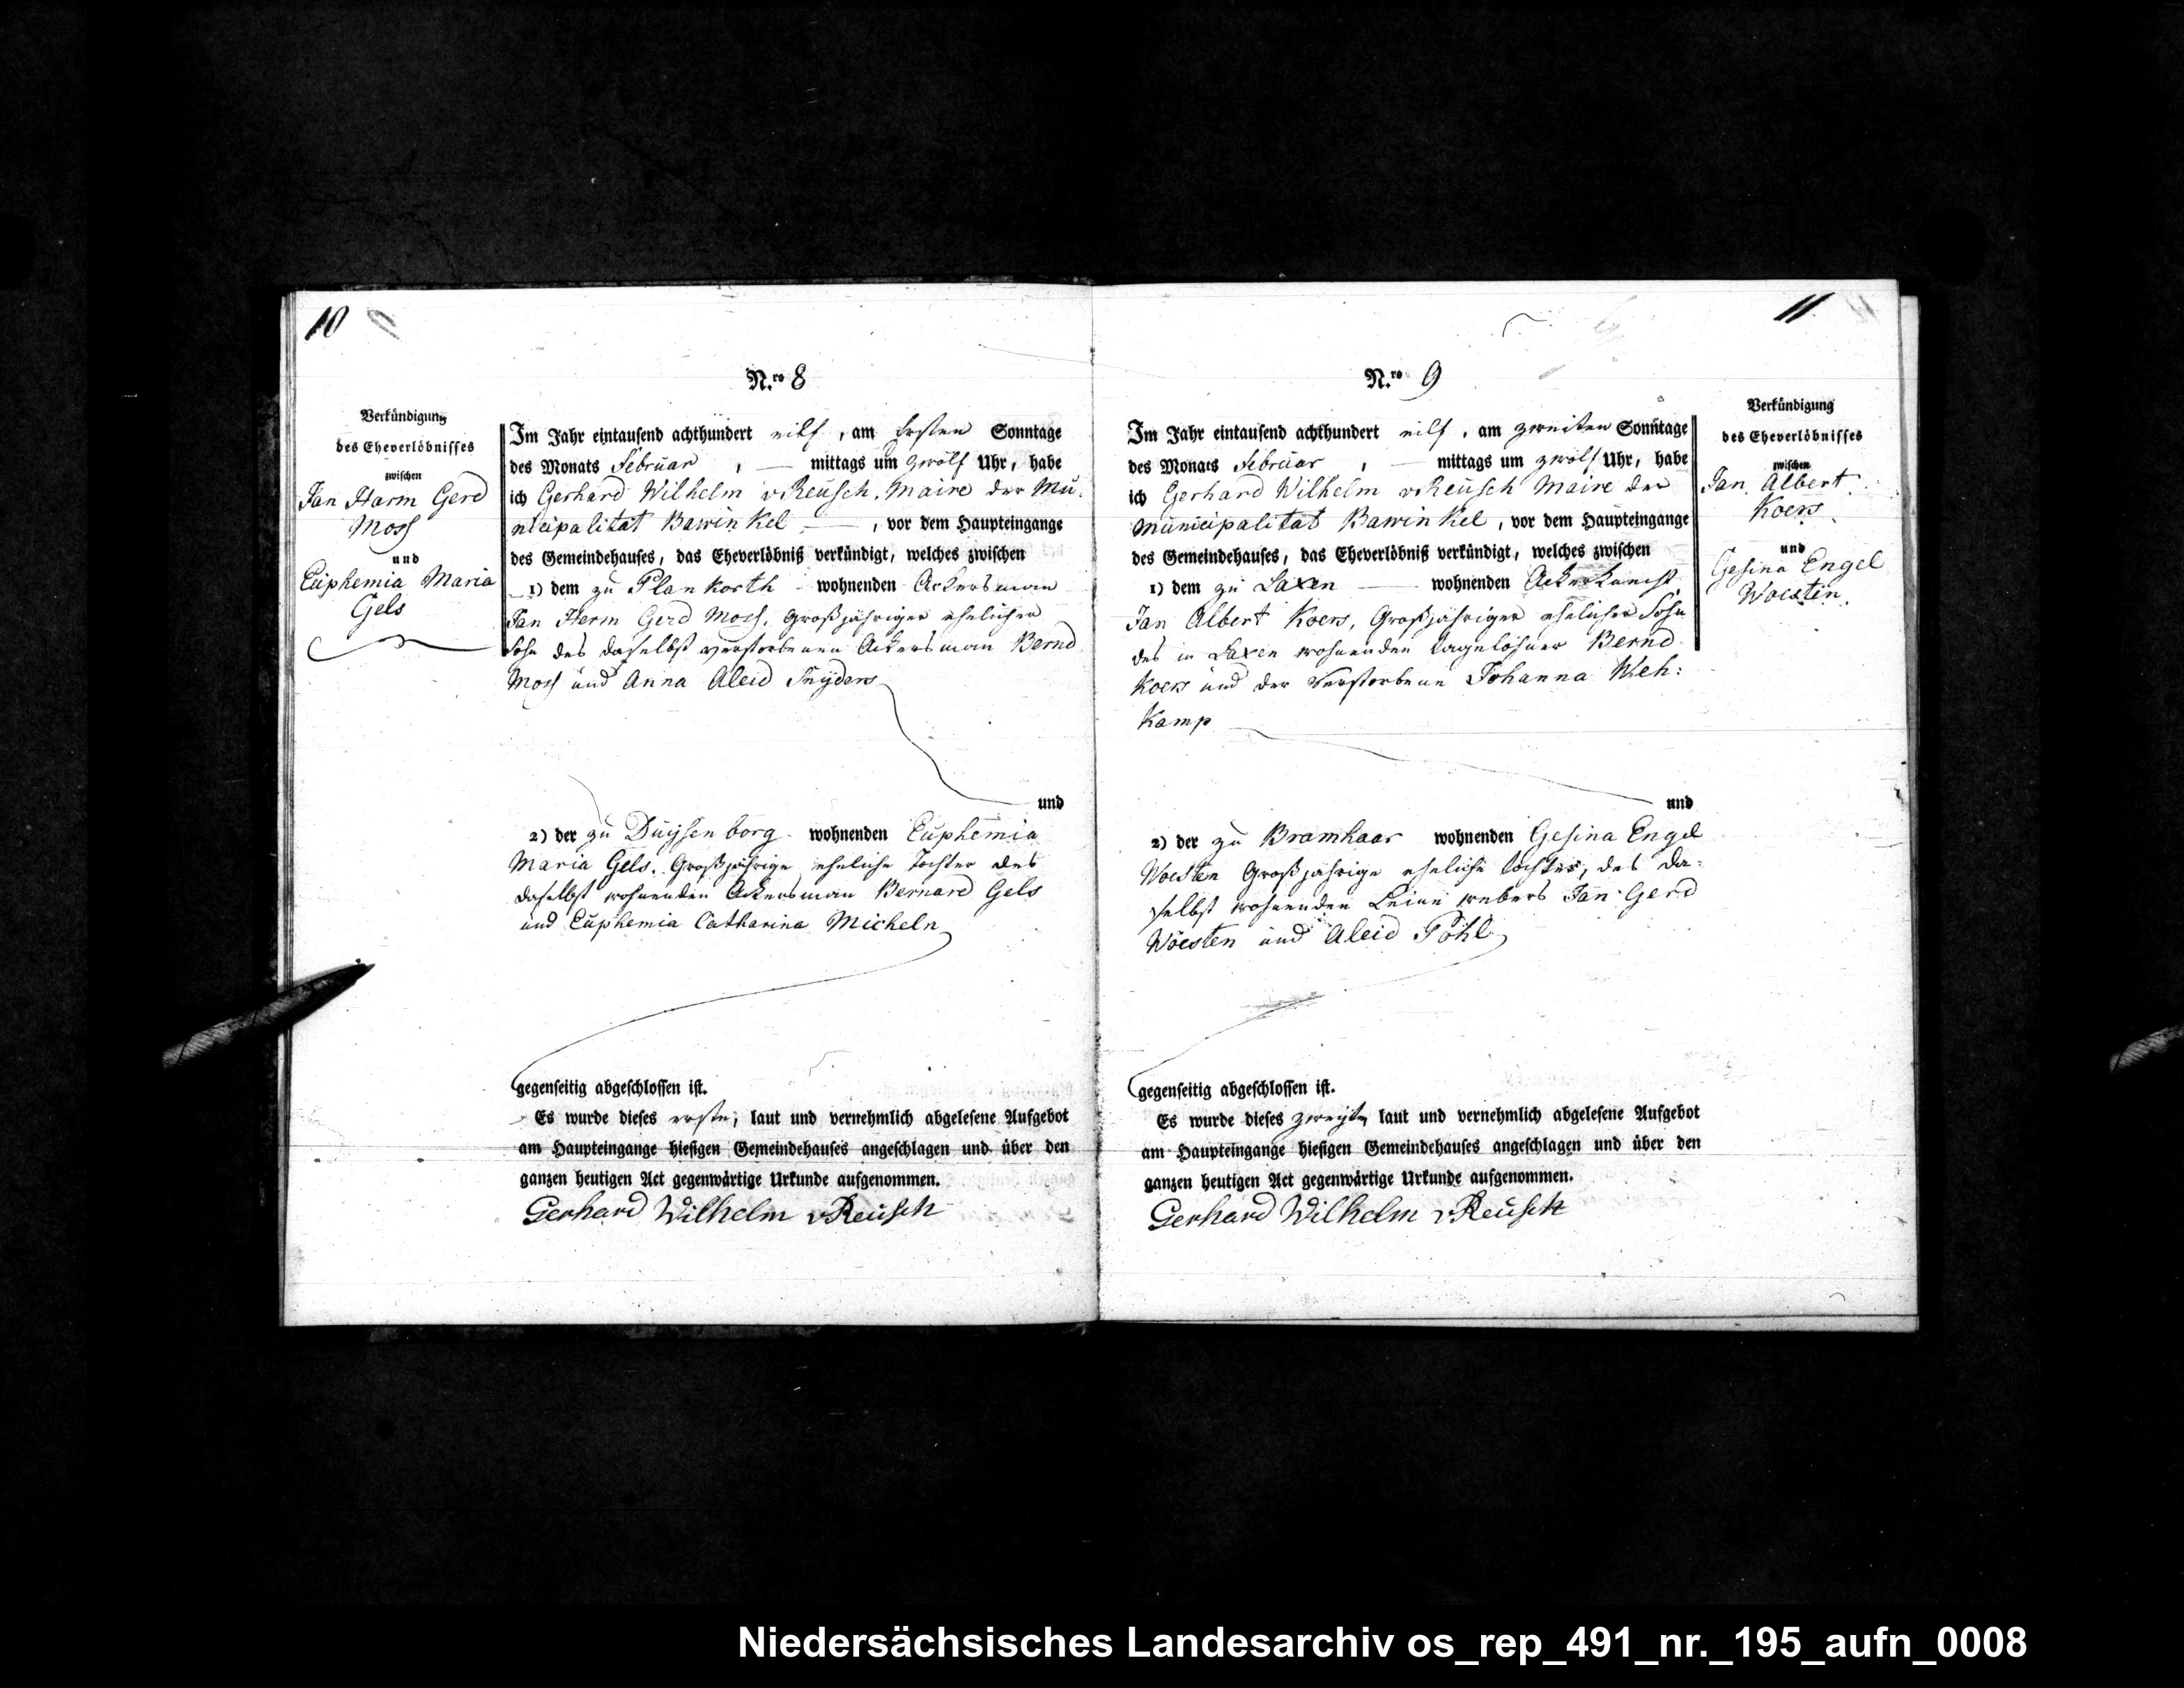 10
N.ro 8
Verkündigung
des Eheverlöbnisses
zwischen
Jan Harm Gerd
Moss
und
Euphemia Maria
Gels
Im Jahr eintausend achthundert eilf, am Ersten Sonntage
des Monats Februar, — mittags um zwölf Uhr, habe
ich Gerhard Wilhelm v Reusch, Maire der Mu-
nicipalitat Bawinkel —, vor dem Haupteingange
des Gemeindehauses, das Eheverlöbniß verkündigt, welches zwischen
1) dem zu Plankorth wohnenden Ackersman
Jan Herm Gerd Moss, Großjähriger ehelicher
Sohn des daselbst verstorbenen Ackersman Bernd
Moss und Anna Aleid Snyders
und
2) der zu Duysenborg wohnenden Euphemia
Maria Gels, Großjährige eheliche Tochter des
daselbst wohnenden Ackersman Bernard Gels
und Euphemia Catharina Micheln
gegenseitig abgeschlossen ist.
Es wurde dieses erste, laut und vernehmlich abgelesene Aufgebot
am Haupteingange hiesigen Gemeindehauses angeschlagen und über den
ganzen heutigen Act gegenwärtige Urkunde aufgenommen.
Gerhard Wilhelm v Reusch
11
N.ro 9
Verkündigung
des Eheverlöbnisses
zwischen
Jan Albert
Koers
und
Gesina Engel
Woesten
Im Jahr eintausend achthundert eilf, am zweiten Sonntage
des Monats Februar, — mittags um zwölf Uhr, habe
ich Gerhard Wilhelm v Reusch Maire der
Municipalitat Bawinkel, vor dem Haupteingange
des Gemeindehauses, das Eheverlöbniß verkündigt, welches zwischen
1) dem zu Laxen — wohnenden Ackerknecht
Jan Albert Koers, Großjähriger ehelicher Sohn
des in Laxen wohnenden Tagelöhner Bernd
Koers und der Verstorbene Johanna Weh:
Kamp
und
2) der zu Bramhaar wohnenden Gesina Engel
Woesten Großjährige eheliche Tochter, des da-
selbst wohnenden Leinewebers Jan Gerd
Wöesten und Aleid Pöhl
gegenseitig abgeschlossen ist.
Es wurde dieses zweyte, laut und vernehmlich abgelesene Aufgebot
am Haupteingange hiesigen Gemeindehauses angeschlagen und über den
ganzen heutigen Act gegenwärtige Urkunde aufgenommen.
Gerhard Wilhelm v Reusch
Niedersächsisches Landesarchiv os_rep_491_nr._195_aufn_0008